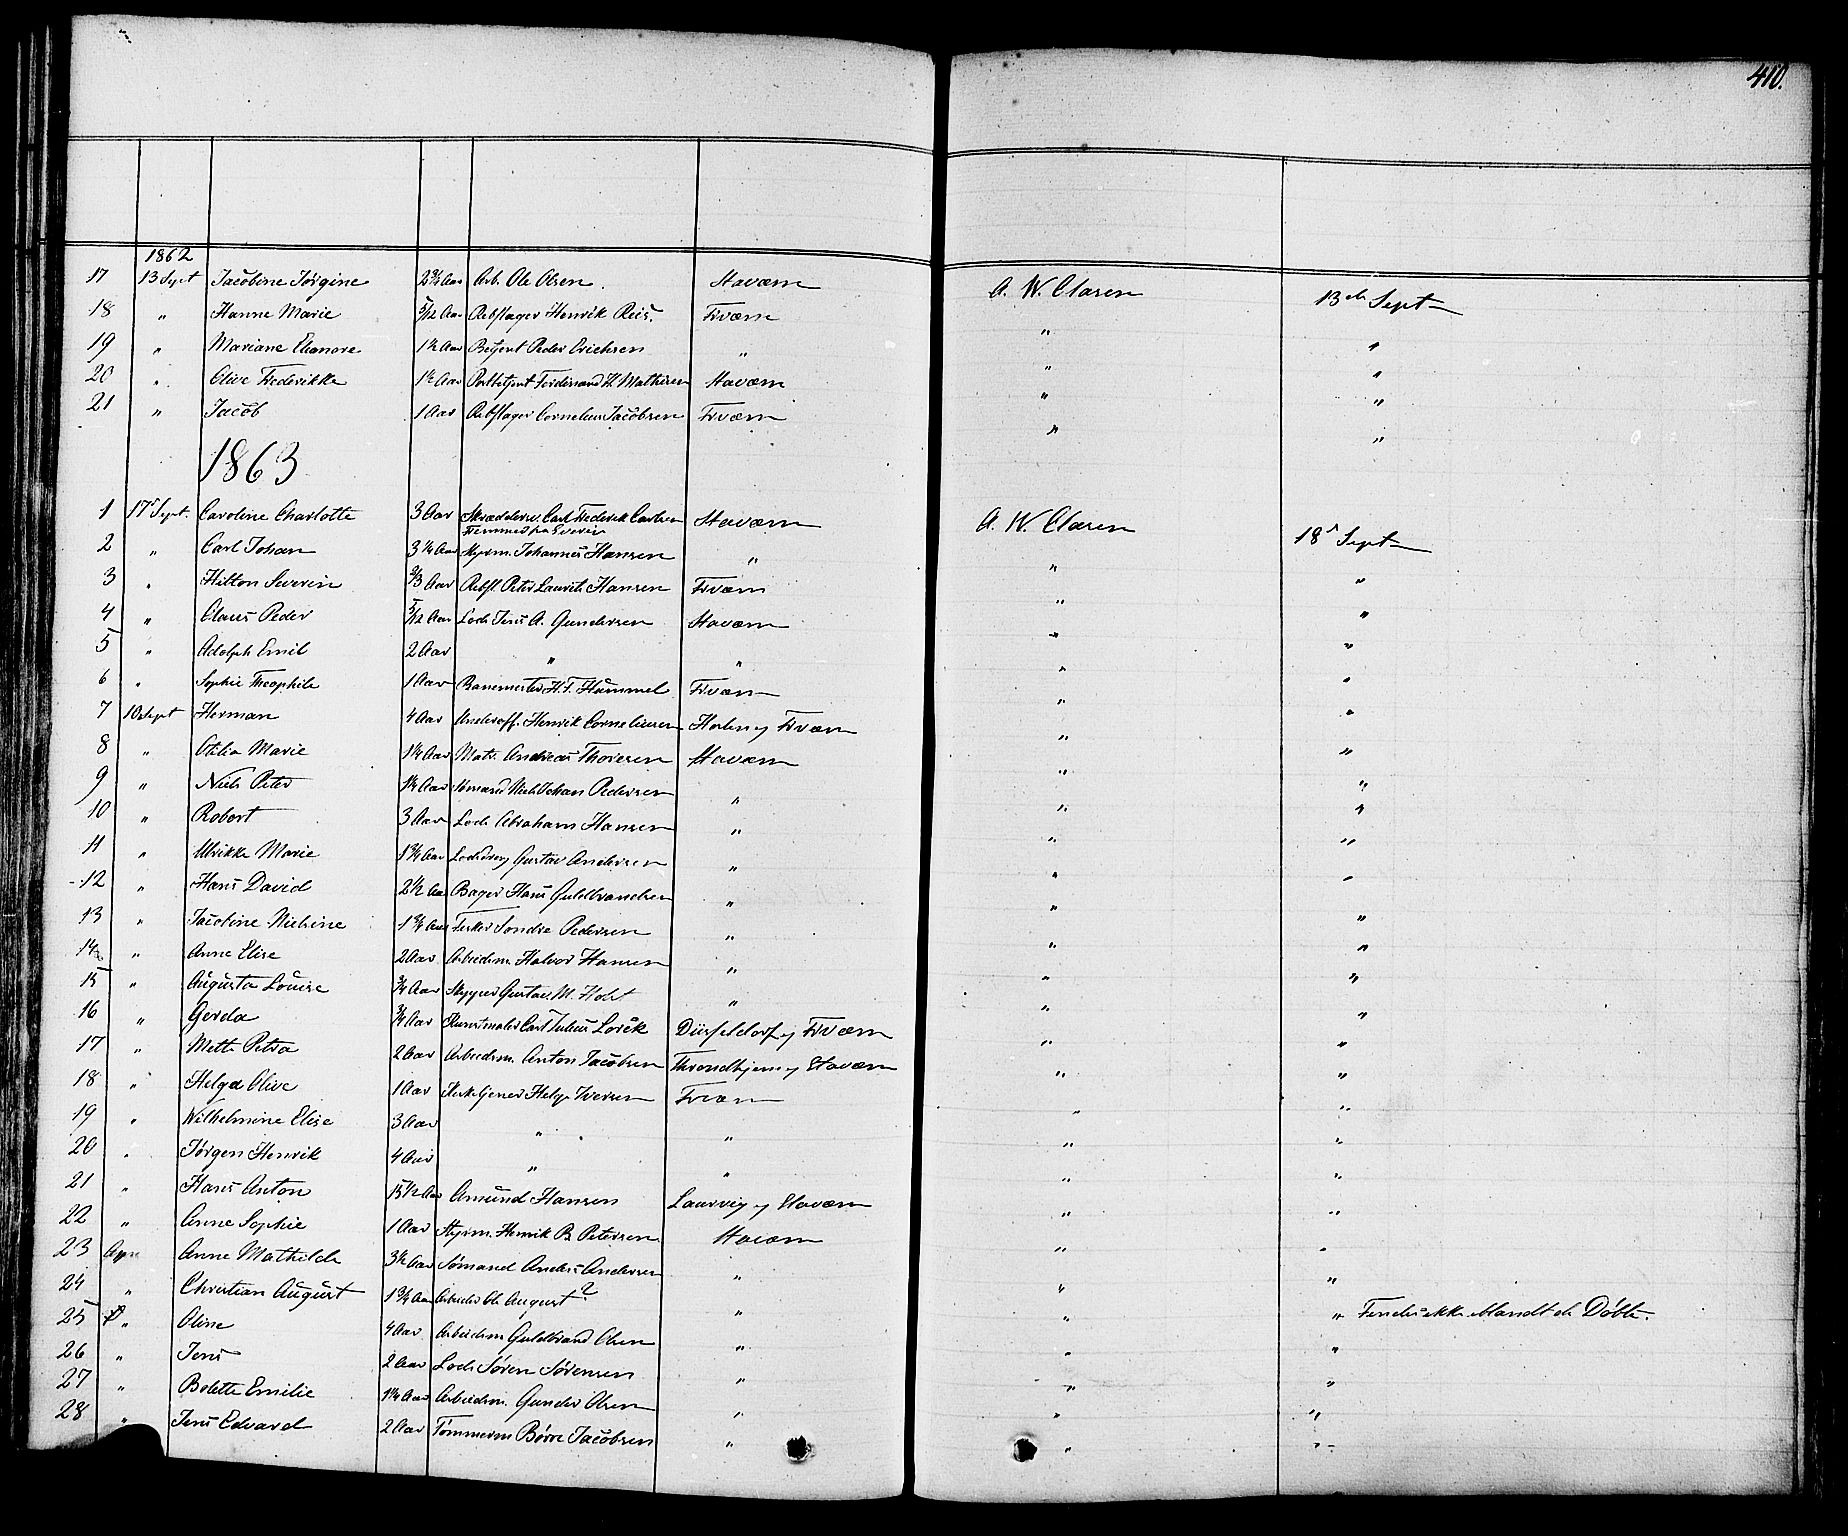 410.
1862
17 13 Sept Jacobine Jørgine 2 3/4 Aar Arb. Ole Olsen. Staværn A. W. Claren 13de Sept
18 " Hanne Marie 5/12 Aar Rebslager Henrik Reis. Frværn " "
19 " Mariane Eleonore 1 1/2 Aar Betjent Peder Erichsen " " "
20 " Olive Frederikke 1 1/2 Aar Ferdinand H. Mathisen Staværn " "
21 " Jacob 1 Aar Rebslager Cornelius Jacobsen Frværn " "
1863
1 17 Sept. Caroline Charlotte 3 Aar Skræddersv. Carl Frederik Carlsen Staværn A. W. Claren 18 Sept
2 " Carl Johan 3 1/2 Aar Styrm. Johannes Hansen " " "
3 " Hilton Severin 2/3 Aar Rebsl. Peter Laurits Hansen Frværn " "
4 " Claus Peder 5/12 Aar Lods Jens A. Gundersen Staværn " "
5 " Adolph Emil 2 Aar " " " "
6 " Sophie Theophile 1 Aar Banemester H. F. Hammel Frværn " "
7 10 Sept Herman 4 Aar Underoff. Henrik Corneliusen Horten og Frværn " "
8 " Otilia Marie 1 1/4 Aar Matr. Andreas Thoresen Staværn " "
9 " Niels Peter 1 1/4 Aar Sømand Niels Johan Pedersen " " "
10 " Robert 3 Aar Lods Abraham Hansen " " "
11 " Ulrikke Marie 1 3/4 Aar Lodsdreng Gustav Andersen " " "
12 " Hans David 2 1/2 Aar Bager Hans Guldbrandsen " " "
13 " Jacobine Nielsine 1 3/4 Aar Fisker Søndre Pedersen " " "
14 " Anne Elise 2 Aar Arbeidsm. Halvor Hansen " " "
15 " Augusta Louise 3/4 Aar Skipper Gustav M. Holst " " "
16 " Gerda 3/4 Aar Kunstmaler Carl Julius Lorck Düsseldorf og Frværn " "
17 " Mette Petra 2 Aar Arbeidsm. Anton Jacobsen Throndhjem og Staværn " "
18 " Helga Olive 1 Aar Kirketjener Helge Iversen Frværn " "
19 " Wilhelmine Elise 3 Aar " " " "
20 " Jørgen Henrik 4 Aar " " " "
21 " Hans Anton 15 1/2 Aar Amund Hansen Laurvig og Staværn " "
22 " Anne Sophie 1 Aar Styrm. Henrik B. Petersen Staværn " "
23 Anne Mathilde 3 1/2 Aar Sømand Anders Andersen " " "
24 " Christian August 1 3/4 Aar Arbeider Ole August? " " "
25 " Oline 4 Aar Arbeidsm Guldbrand Olsen " " " Findes ikke blandt de Døbte.
26 " Jens 2 Aar Lods Søren Sørensen " " "
27 " Bolette Emilie 1 1/4 Aar Arbeidsm. Gunder Olsen " " "
28 " Jens Edvard 2 Aar Tømmerm Børre Jacobsen " " "